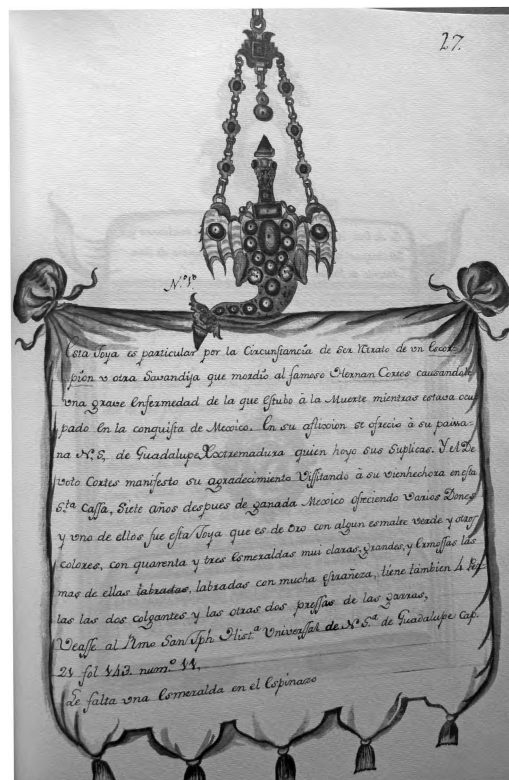 27.
N.º 1º
Esta Joya es particular por la Circunstancia de ser Retrato de vn Escor-
pion v otra Savandija que mordio al famoso Hernan Cortes causandole
vna grave Enfermedad de la que Estubo à la Muerte mientras estava ocu
pado En la conquista de Mexico. En su aflixion se ofrecio a su paissa-
na N.S. de Guadalupe, Xxtremadura quien hoyo sus Suplicas. Y el De
voto Cortes manifesto su agradecimiento Vissitando à su vienhechora en esta
S.ta Cassa, Siete años despues de ganada Mexico ofreciendo Varios Dones
y vno de ellos fue esta Joya que es de Oro con algun esmalte verde y otros
colores, con quarenta y tres Esmeraldas mui claras, grandes, y Ermossas las
mas de ellas labradas, labradas con mucha Estrañeza, tiene tambien 4 Per
las las dos colgantes y las otras dos pressas de las garras,
Veasse al Rmo San Jph Hist.ª Universsal de N.S.ª de Guadalupe Cap.
21 fol 143. num.º 11,
Le falta vna Esmeralda en el Espinazo